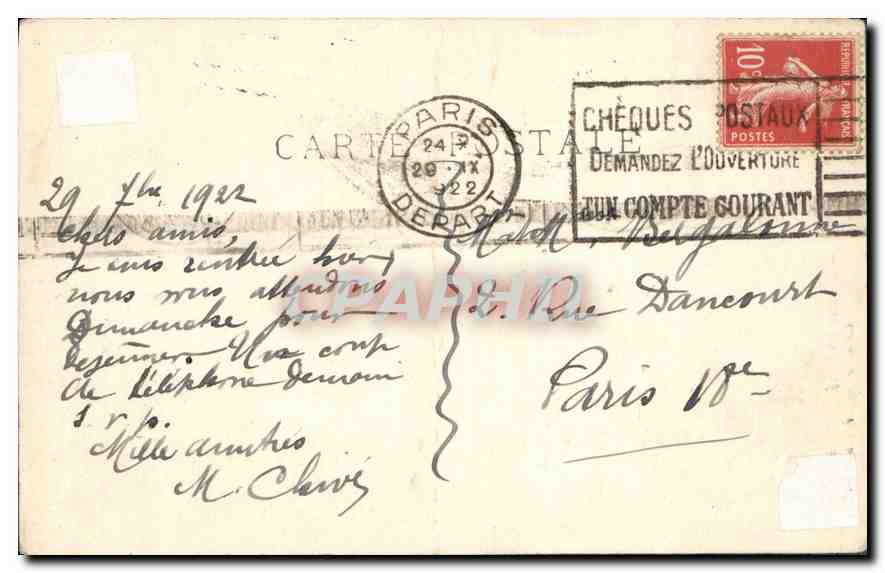 CARTE POSTALE
PARIS
24
29 IX
922
DEPART
CHÈQUES POSTAUX
DEMANDEZ L'OUVERTURE
D'UN COMPTE COURANT
10c
POSTES
29 7bre 1922
Chers amis,
Je suis rentrée hier,
nous vous attendons
Dimanche pour
dejeuner. Un coup
de téléphone demain
s. v. p.
Mille amitiés
M.
Mr et Mme
2. Rue Dancourt
Paris 18e
CPAPHIL